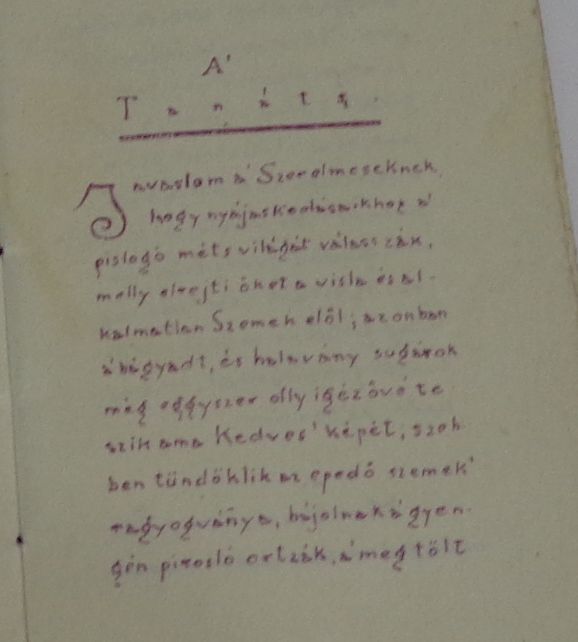 A'
Tanáts.
Javaslom a' Szerelmeseknek,
hogy nyájaskodásaikhoz a'
pislogó méts világát válasszák,
melly elrejti őket a visla és al-
kalmatlan Szemek elől; azonban
a' bágyadt, és halavány sugárok
még eggyszer olly igézővé te
szik ama Kedves' képét, szeb
ben tündöklik az epedő szemek'
ragyogványa, bájolnak a' gyen-
gén pirosló ortzák, a' meg tölt